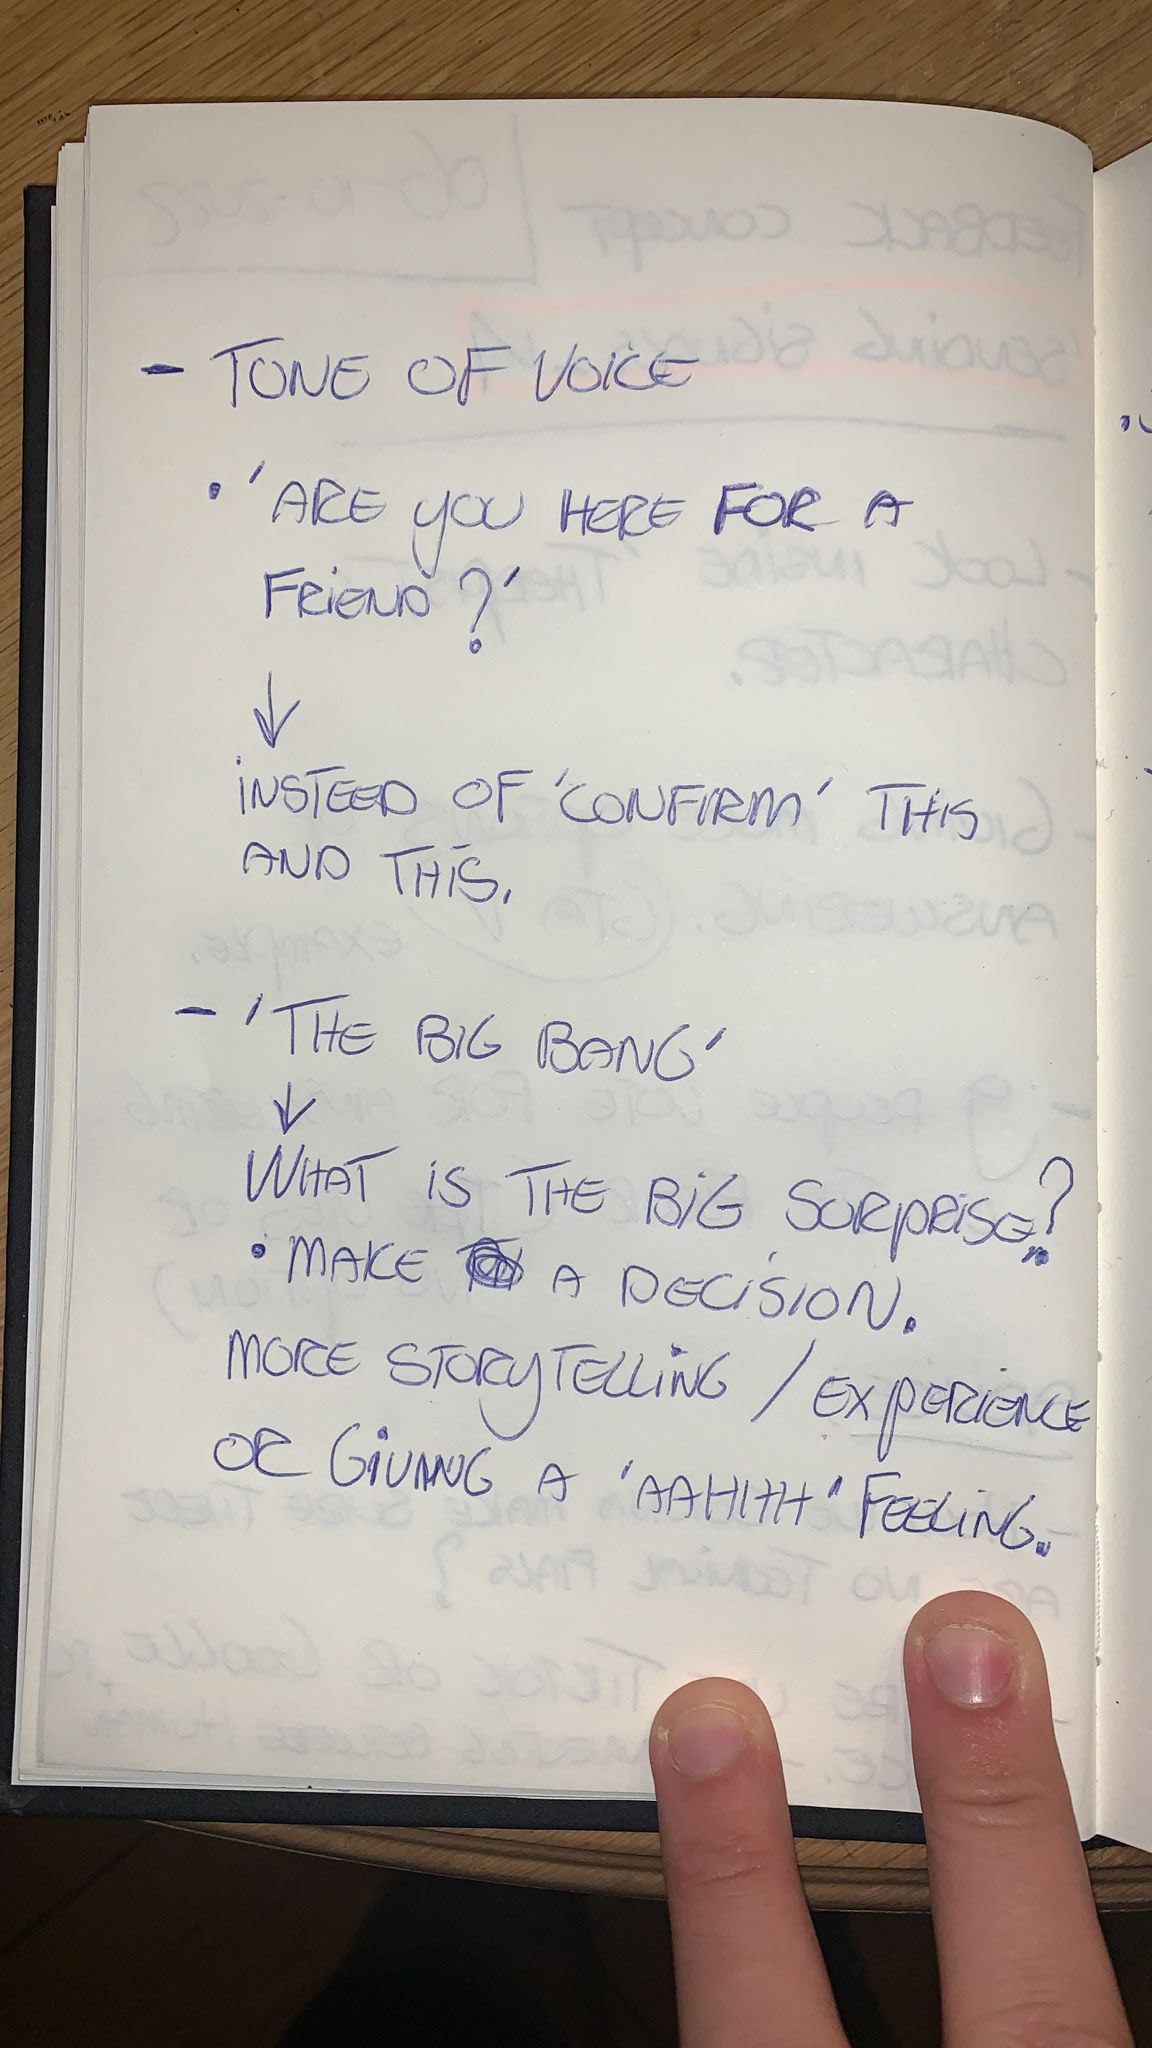 - TONE OF VOICE
• 'ARE YOU HERE FOR A
FRIEND?'
↓
INSTEED OF 'CONFIRM' THIS
AND THIS.
- 'THE BIG BANG'
↓
WHAT IS THE BIG SURPRISE?
• MAKE A DECISION.
MORE STORYTELLING / EXPERIENCE
OR GIVING A 'AAHHH' FEELING.